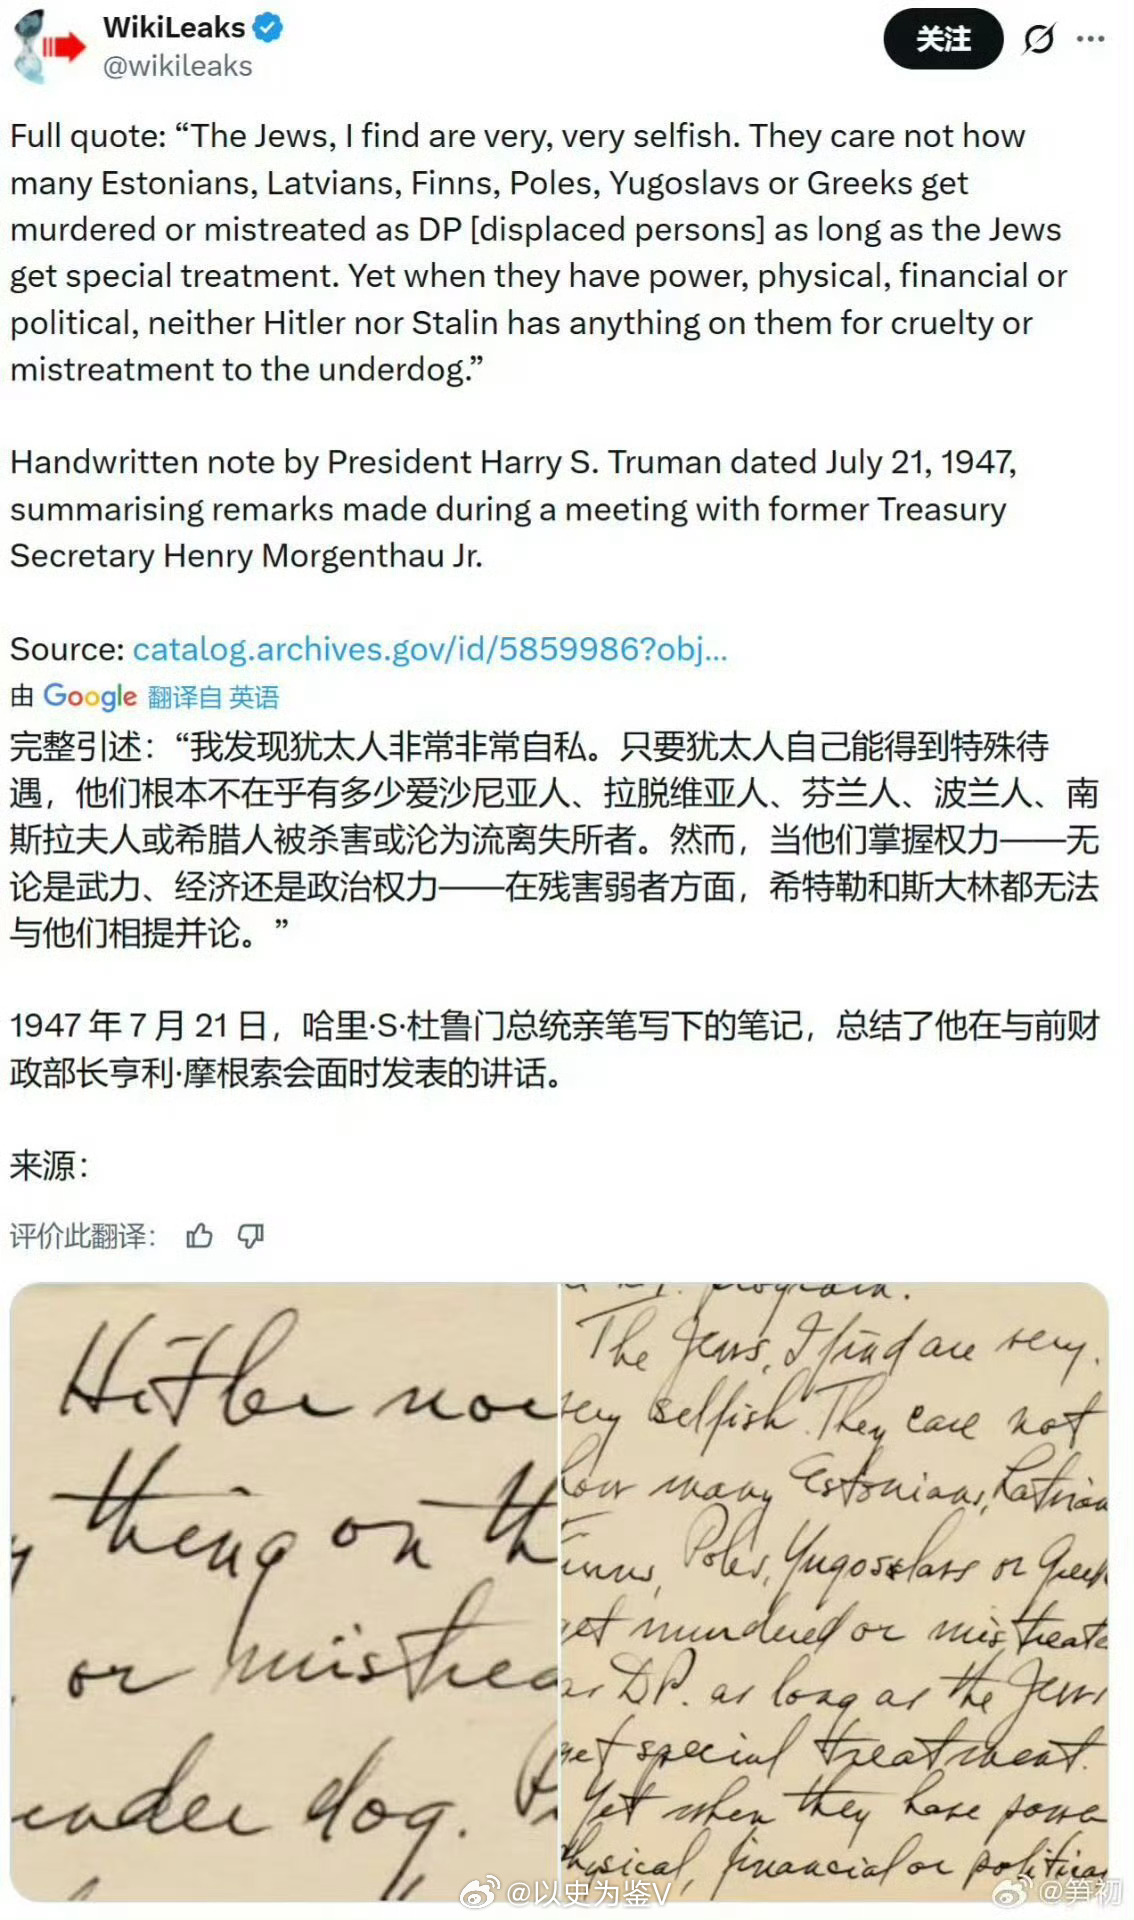 WikiLeaks
@wikileaks
关注
Full quote: “The Jews, I find are very, very selfish. They care not how
many Estonians, Latvians, Finns, Poles, Yugoslavs or Greeks get
murdered or mistreated as DP [displaced persons] as long as the Jews
get special treatment. Yet when they have power, physical, financial or
political, neither Hitler nor Stalin has anything on them for cruelty or
mistreatment to the underdog.”
Handwritten note by President Harry S. Truman dated July 21, 1947,
summarising remarks made during a meeting with former Treasury
Secretary Henry Morgenthau Jr.
Source: catalog.archives.gov/id/5859986?obj...
由 Google 翻译自 英语
完整引述：“我发现犹太人非常非常自私。只要犹太人自己能得到特殊待
遇，他们根本不在乎有多少爱沙尼亚人、拉脱维亚人、芬兰人、波兰人、南
斯拉夫人或希腊人被杀害或沦为流离失所者。然而，当他们掌握权力——无
论是武力、经济还是政治权力——在残害弱者方面，希特勒和斯大林都无法
与他们相提并论。”
1947 年 7 月 21 日，哈里·S·杜鲁门总统亲笔写下的笔记，总结了他在与前财
政部长亨利·摩根索会面时发表的讲话。
来源：
评价此翻译：
Hitler nor
thing on th
or mistrea
under dog.
program.
The Jews, I find are very,
very selfish. They care not
how many Estonians, Latvian
Finns, Poles, Yugoslavs or Greek
get murdered or mistreate
as D.P. as long as the Jews
get special treatment.
Yet when they have power
physical, financial or political
@以史为鉴V
@笋初